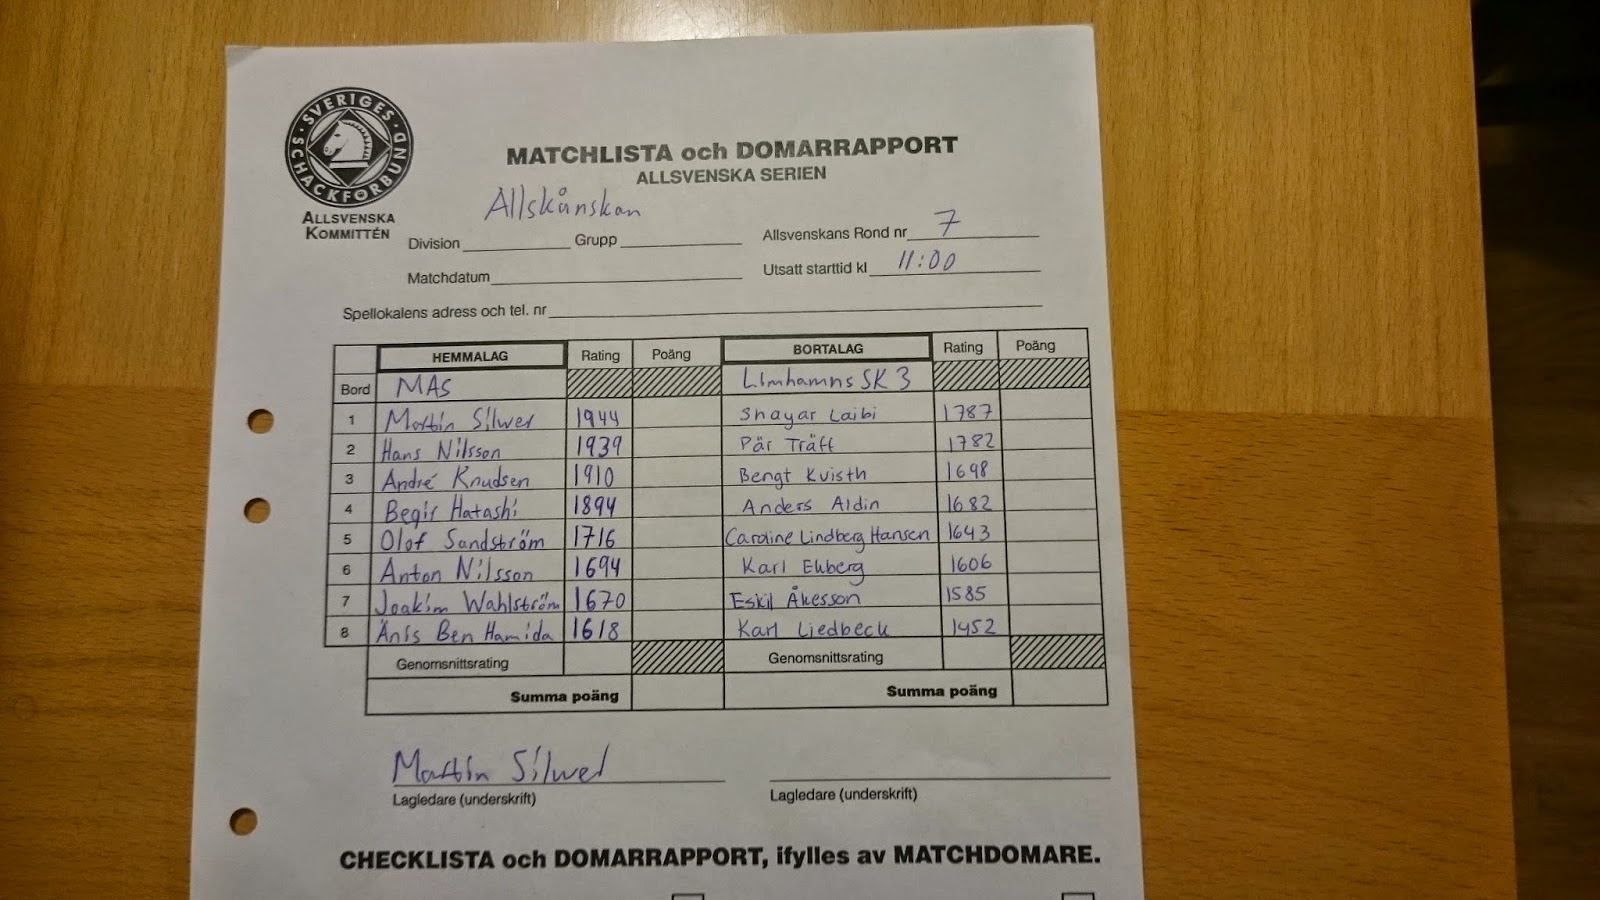 SVERIGES SCHACKFÖRBUND
ALLSVENSKA
KOMMITTÉN
MATCHLISTA och DOMARRAPPORT
ALLSVENSKA SERIEN
Allskånskan
Division Grupp Allsvenskans Rond nr 7
Matchdatum Utsatt starttid kl 11:00
Spellokalens adress och tel. nr
HEMMALAG Rating Poäng BORTALAG Rating Poäng
Bord MAS Limhamns SK 3
1 Martin Silwer 1944 Shayar Laibi 1787
2 Hans Nilsson 1939 Pär Träff 1782
3 André Knudsen 1910 Bengt Kvisth 1698
4 Begir Hatashi 1894 Anders Aldin 1682
5 Olof Sandström 1716 Caroline Lindberg Hansen 1643
6 Anton Nilsson 1694 Karl Ekberg 1606
7 Joakim Wahlström 1670 Eskil Åkesson 1585
8 Änis Ben Hamida 1618 Karl Liedbeck 1452
Genomsnittsrating Genomsnittsrating
Summa poäng Summa poäng
Martin Silwer
Lagledare (underskrift) Lagledare (underskrift)
CHECKLISTA och DOMARRAPPORT, ifylles av MATCHDOMARE.